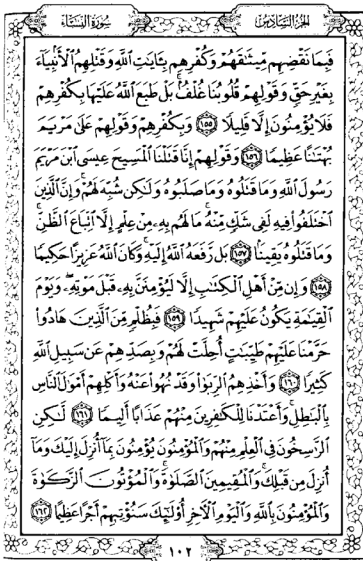 الجزء السادس
سورة النساء
فَبِمَا نَقْضِهِم مِّيثَٰقَهُمْ وَكُفْرِهِم بِـَٔايَٰتِ ٱللَّهِ وَقَتْلِهِمُ ٱلْأَنۢبِيَآءَ
بِغَيْرِ حَقٍّ وَقَوْلِهِمْ قُلُوبُنَا غُلْفٌۢ ۚ بَلْ طَبَعَ ٱللَّهُ عَلَيْهَا بِكُفْرِهِمْ
فَلَا يُؤْمِنُونَ إِلَّا قَلِيلًا ١٥٥ وَبِكُفْرِهِمْ وَقَوْلِهِمْ عَلَىٰ مَرْيَمَ
بُهْتَٰنًا عَظِيمًا ١٥٦ وَقَوْلِهِمْ إِنَّا قَتَلْنَا ٱلْمَسِيحَ عِيسَى ٱبْنَ مَرْيَمَ
رَسُولَ ٱللَّهِ وَمَا قَتَلُوهُ وَمَا صَلَبُوهُ وَلَٰكِن شُبِّهَ لَهُمْ ۚ وَإِنَّ ٱلَّذِينَ
ٱخْتَلَفُوا۟ فِيهِ لَفِى شَكٍّ مِّنْهُ ۚ مَا لَهُم بِهِۦ مِنْ عِلْمٍ إِلَّا ٱتِّبَاعَ ٱلظَّنِّ ۚ
وَمَا قَتَلُوهُ يَقِينًۢا ١٥٧ بَل رَّفَعَهُ ٱللَّهُ إِلَيْهِ ۚ وَكَانَ ٱللَّهُ عَزِيزًا حَكِيمًا
١٥٨ وَإِن مِّنْ أَهْلِ ٱلْكِتَٰبِ إِلَّا لَيُؤْمِنَنَّ بِهِۦ قَبْلَ مَوْتِهِۦ ۖ وَيَوْمَ
ٱلْقِيَٰمَةِ يَكُونُ عَلَيْهِمْ شَهِيدًا ١٥٩ فَبِظُلْمٍ مِّنَ ٱلَّذِينَ هَادُوا۟
حَرَّمْنَا عَلَيْهِمْ طَيِّبَٰتٍ أُحِلَّتْ لَهُمْ وَبِصَدِّهِمْ عَن سَبِيلِ ٱللَّهِ
كَثِيرًا ١٦٠ وَأَخْذِهِمُ ٱلرِّبَوٰا۟ وَقَدْ نُهُوا۟ عَنْهُ وَأَكْلِهِمْ أَمْوَٰلَ ٱلنَّاسِ
بِٱلْبَٰطِلِ ۚ وَأَعْتَدْنَا لِلْكَٰفِرِينَ مِنْهُمْ عَذَابًا أَلِيمًا ١٦١ لَّٰكِنِ
ٱلرَّٰسِخُونَ فِى ٱلْعِلْمِ مِنْهُمْ وَٱلْمُؤْمِنُونَ يُؤْمِنُونَ بِمَآ أُنزِلَ إِلَيْكَ وَمَآ
أُنزِلَ مِن قَبْلِكَ ۚ وَٱلْمُقِيمِينَ ٱلصَّلَوٰةَ ۚ وَٱلْمُؤْتُونَ ٱلزَّكَوٰةَ
وَٱلْمُؤْمِنُونَ بِٱللَّهِ وَٱلْيَوْمِ ٱلْءَاخِرِ أُو۟لَٰٓئِكَ سَنُؤْتِيهِمْ أَجْرًا عَظِيمًا ١٦٢
١٠٢